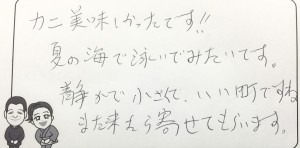 カニ美味しかったです!!
夏の海で泳いでみたいです。
静かで小さくて、いい町ですね
また来たら寄せてもらいます。